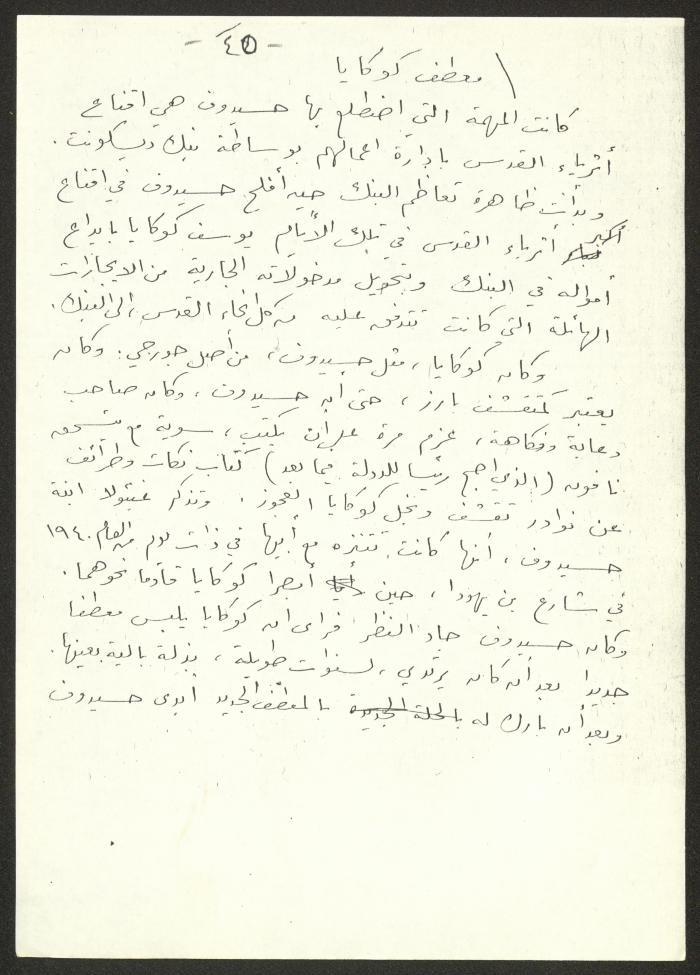 - ٤٥ -
معطف كوكايا
كانت المهمة التي اضطلع بها حسيدوف هي اقناع
أثرياء القدس بإدارة اعمالهم بوساطة بنك ديسكونت.
وبدأت ظاهرة تعاظم البنك حين أفلح حسيدوف في اقناع
أكبر أثرياء القدس في تلك الأيام يوسف كوكايا بايداع
أمواله في البنك وبتحويل مدخولاته الجارية من الايجارات
الهائلة التي كانت تتدفق عليه من كل أنحاء القدس، الى البنك.
وكان كوكايا، مثل حسيدوف، من أصل جورجي. وكان
يعتبر كمتقشف بارز، حتى ان حسيدوف، وكان صاحب
دعابة وفكاهة، عزم مرة على ان يكتب، سوية مع يتسحق
نافون (الذي اصبح رئيسا للدولة فيما بعد) كتاب نكات وطرائف
عن نوادر تقشف وبخل كوكايا العجوز. وتذكر غيئولا ابنة
حسيدوف، أنها كانت تتنزه مع أبيها في ذات يوم من العام ١٩٤٠
في شارع بن يهودا، حين أبصرا كوكايا قادما نحوهما.
وكان حسيدوف حاد النظر فرأى ان كوكايا يلبس معطفا
جديدا بعد ان كان يرتدي، لسنوات طويلة، بذلة بالية بعينها.
وبعد أن بارك له بالحلة الجديدة بالمعطف الجديد أبدى حسيدوف